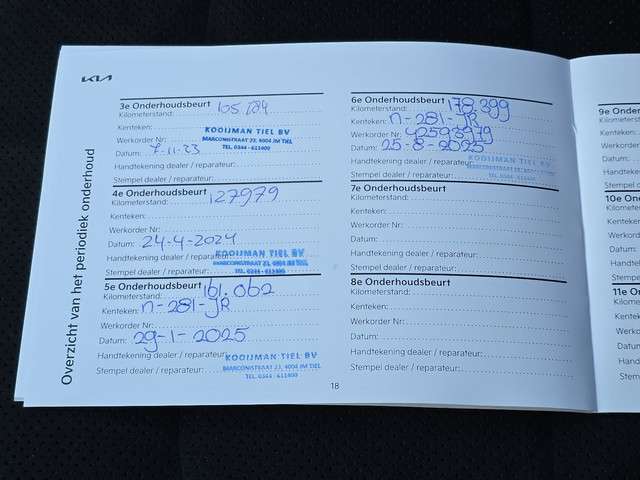 KIA
Overzicht van het periodiek onderhoud
3e Onderhoudsbeurt
Kilometerstand:
Kenteken:
KOOIJMAN TIEL BV
Werkorder Nr:
MARCONISTRAAT 23, 4004 JM TIEL
Datum: 7-11-23
TEL. 0344 - 611400
Handtekening dealer / reparateur:
Stempel dealer / reparateur:
4e Onderhoudsbeurt
Kilometerstand: 127979
Kenteken:
Werkorder Nr:
Datum: 24-4-2024
Handtekening dealer / reparateur:
KOOIJMAN TIEL BV
MARCONISTRAAT 23, 4004 JM TIEL
Stempel dealer / reparateur:
TEL. 0344 - 611400
5e Onderhoudsbeurt
Kilometerstand: 161.062
Kenteken: n-281-JR
Werkorder Nr:
Datum: 29-1-2025
Handtekening dealer / reparateur:
KOOIJMAN TIEL BV
MARCONISTRAAT 23, 4004 JM TIEL
Stempel dealer / reparateur:
TEL. 0344 - 611400
6e Onderhoudsbeurt
Kilometerstand: 178.399
Kenteken: n-281-JR
Werkorder Nr: 42593979
Datum: 25-8-2025
Handtekening dealer / reparateur:
KOOIJMAN TIEL BV
Stempel dealer / reparateur:
7e Onderhoudsbeurt
Kilometerstand:
Kenteken:
Werkorder Nr:
Datum:
Handtekening dealer / reparateur:
Stempel dealer / reparateur:
8e Onderhoudsbeurt
Kilometerstand:
Kenteken:
Werkorder Nr:
Datum:
Handtekening dealer / reparateur:
Stempel dealer / reparateur:
18
9e Onder
Kilometer
Kenteken
Werkorder
Datum:
Handteke
Stempel
10e On
Kilomete
Kenteke
Werkor
Datum:
Handte
Stempe
11e O
Kilome
Kentek
Werko
Datum
Handt
Stemp